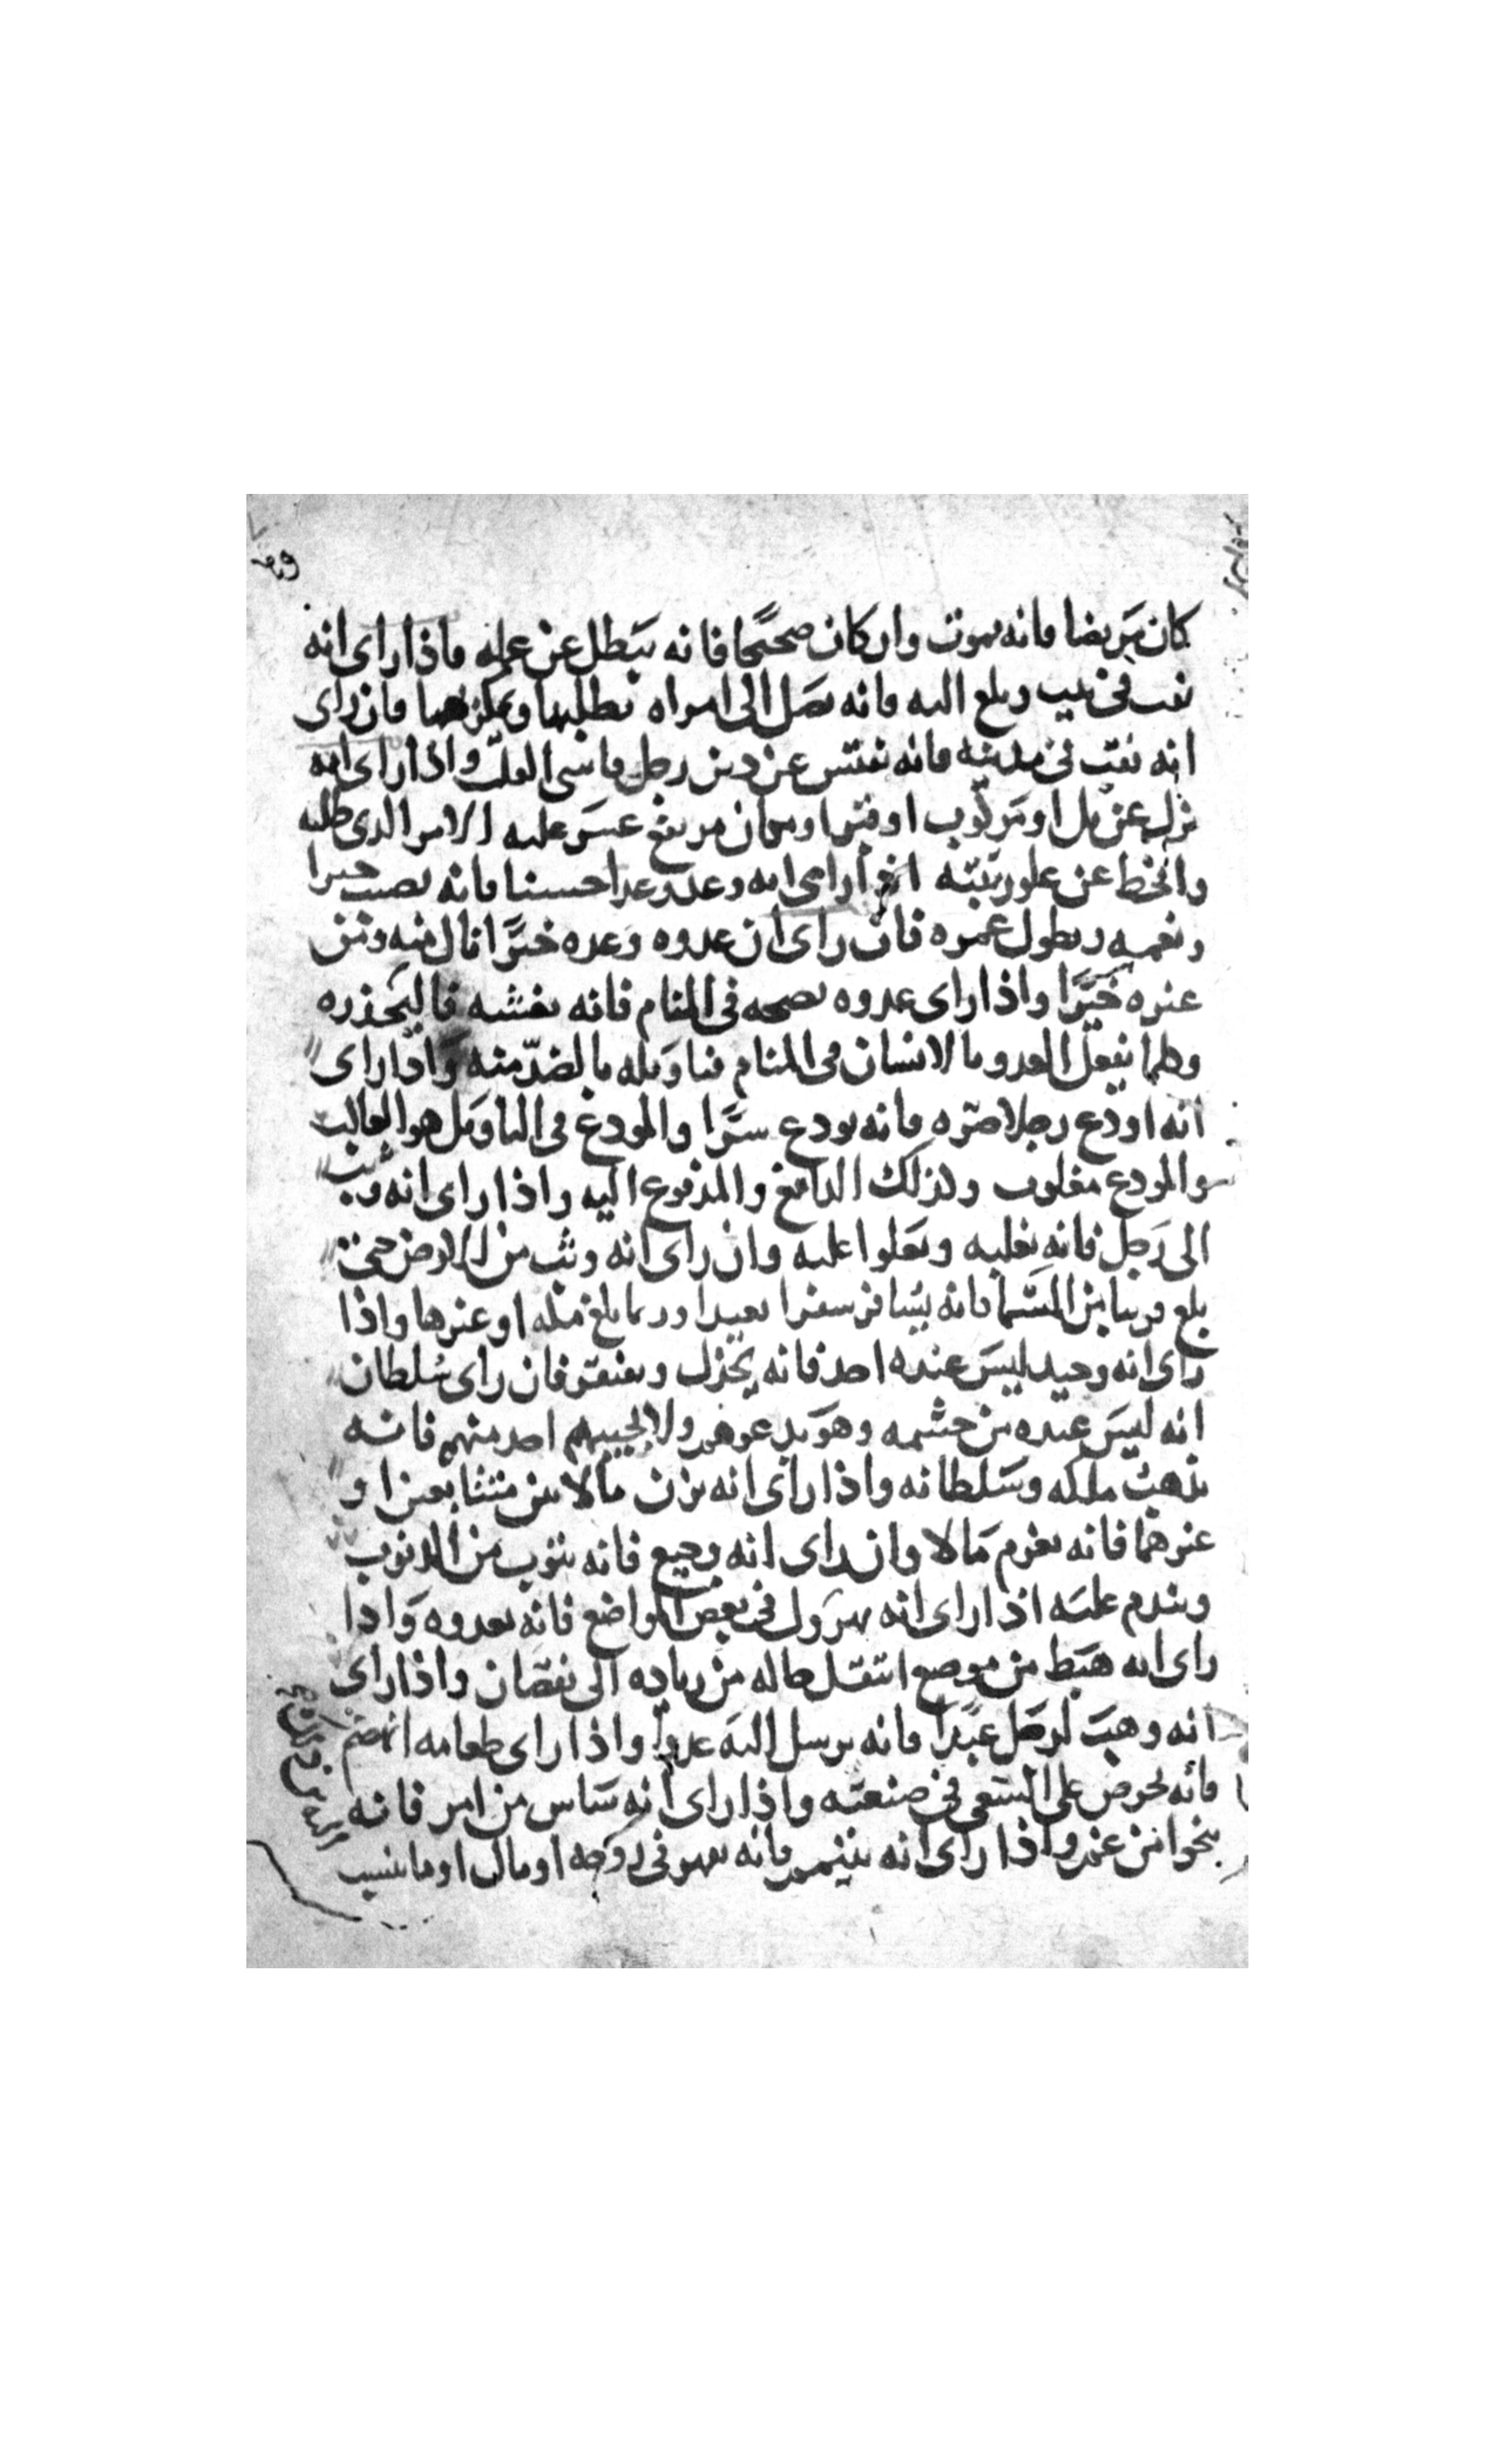 كان مريضا فانه يموت وان كان صحيحا فانه يتبطل عن عمله فاذا راى انه
نقب في بيت وبلغ اليه فانه يصل الى امراه يطلبها ويمكر بها فان راى
انه نقب في مدينة فانه يفتش عن دين رجل قاسى القلب واذا راى انه
نزل عن تل او مركوب او قبر او مكان مرتفع عسر عليه الامر الذى طلبه
وانخط عن علو رتبته اذا راى انه وعد وعدا حسنا فانه يصيب خيرا
ونعمه ويطول عمره فان راى ان عدوه وعده خيرا نال منه ومن
غيره خيرا واذا راى عدوه نصحه في المنام فانه يغشه فاليحذره
وكلما يفعل العدو بالانسان في المنام فتاويله بالضد منه واذا راى
انه اودع رجلا صره فانه يودع سرا والمودع في التاويل هو الغالب
والمودع مغلوب وكذلك الدافع والمدفوع اليه واذا راى انه وثب
الى رجل فانه يغلبه ويعلوا عليه وان راى انه وثب من الارض حتى
بلغ قريبا من السما فانه يسافر سفرا بعيدا وربما بلغ مكه او غيرها واذا
راى انه وحيد ليس عنده احد فانه يخذل ويفتقر فان راى سلطان
انه ليس عنده من حشمه وهو يدعوهم ولا يجيبهم احد منهم فانه
يذهب ملكه وسلطانه واذا راى انه يزن مالا بين متتابعين او
غيرهما فانه يغرم مالا وان راى انه وجيع فانه يتوب من الذنوب
ويندم عليه اذا راى انه يهرول في بعض المواضع فانه بعدوه واذا
راى انه هبط من موضع انتقل حاله من زياده الى نقصان واذا راى
انه وهب لرجل عبدا فانه يرسل اليه عدوا واذا راى طعامه انهضم
فانه يحرص على السعى في صنعته واذا راى انه يياس من امر فانه
ينجوا من غم واذا راى انه يتيم فانه يقهر في زوجه او مال او ما ينسب